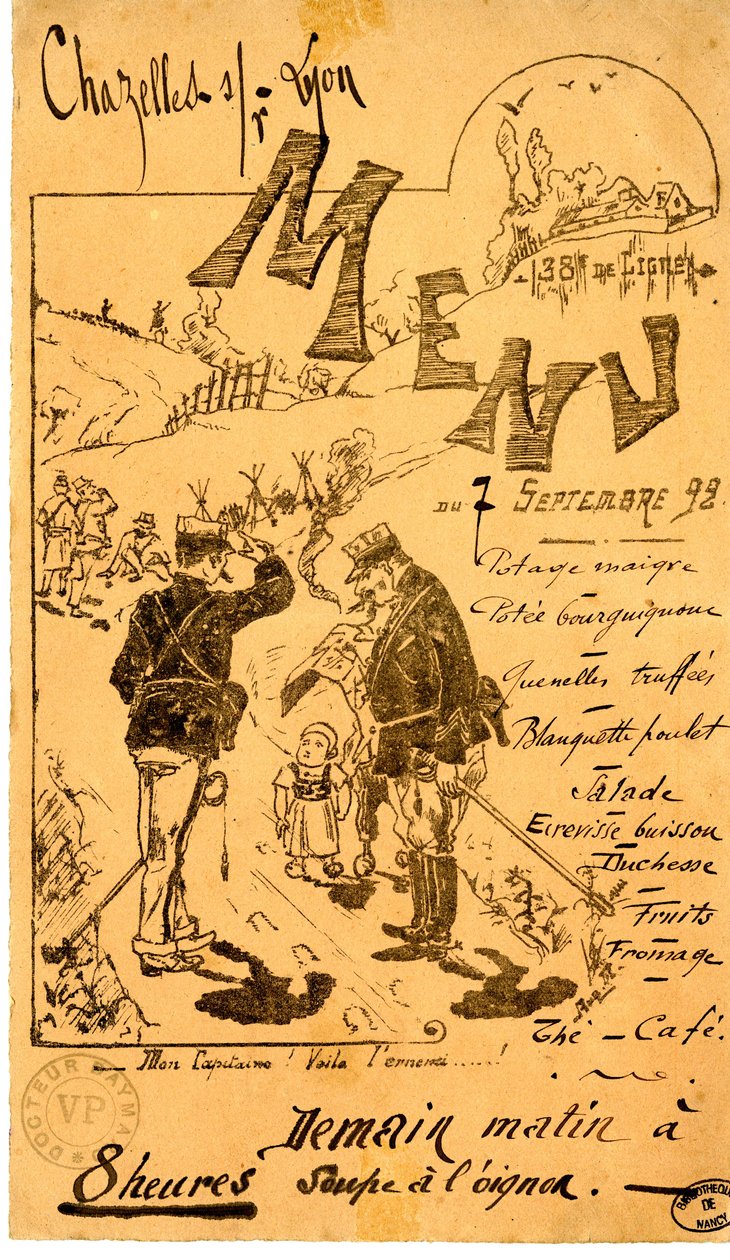 Chazelles s/r Lyon
MENU
138e DE LIGNE
DU 7 SEPTEMBRE 98
Potage maigre
Potée bourguignonne
Quenelles truffées
Blanquette poulet
Salade
Ecrevisse buisson
Duchesse
Fruits
Fromage
Thé - Café.
— Mon Capitaine ! Voila l'ennemi.....!
Demain matin à
8 heures Soupe à l'oignon. —
DOCTEUR PAYMAL
VP
BIBLIOTHEQUE
DE
NANCY